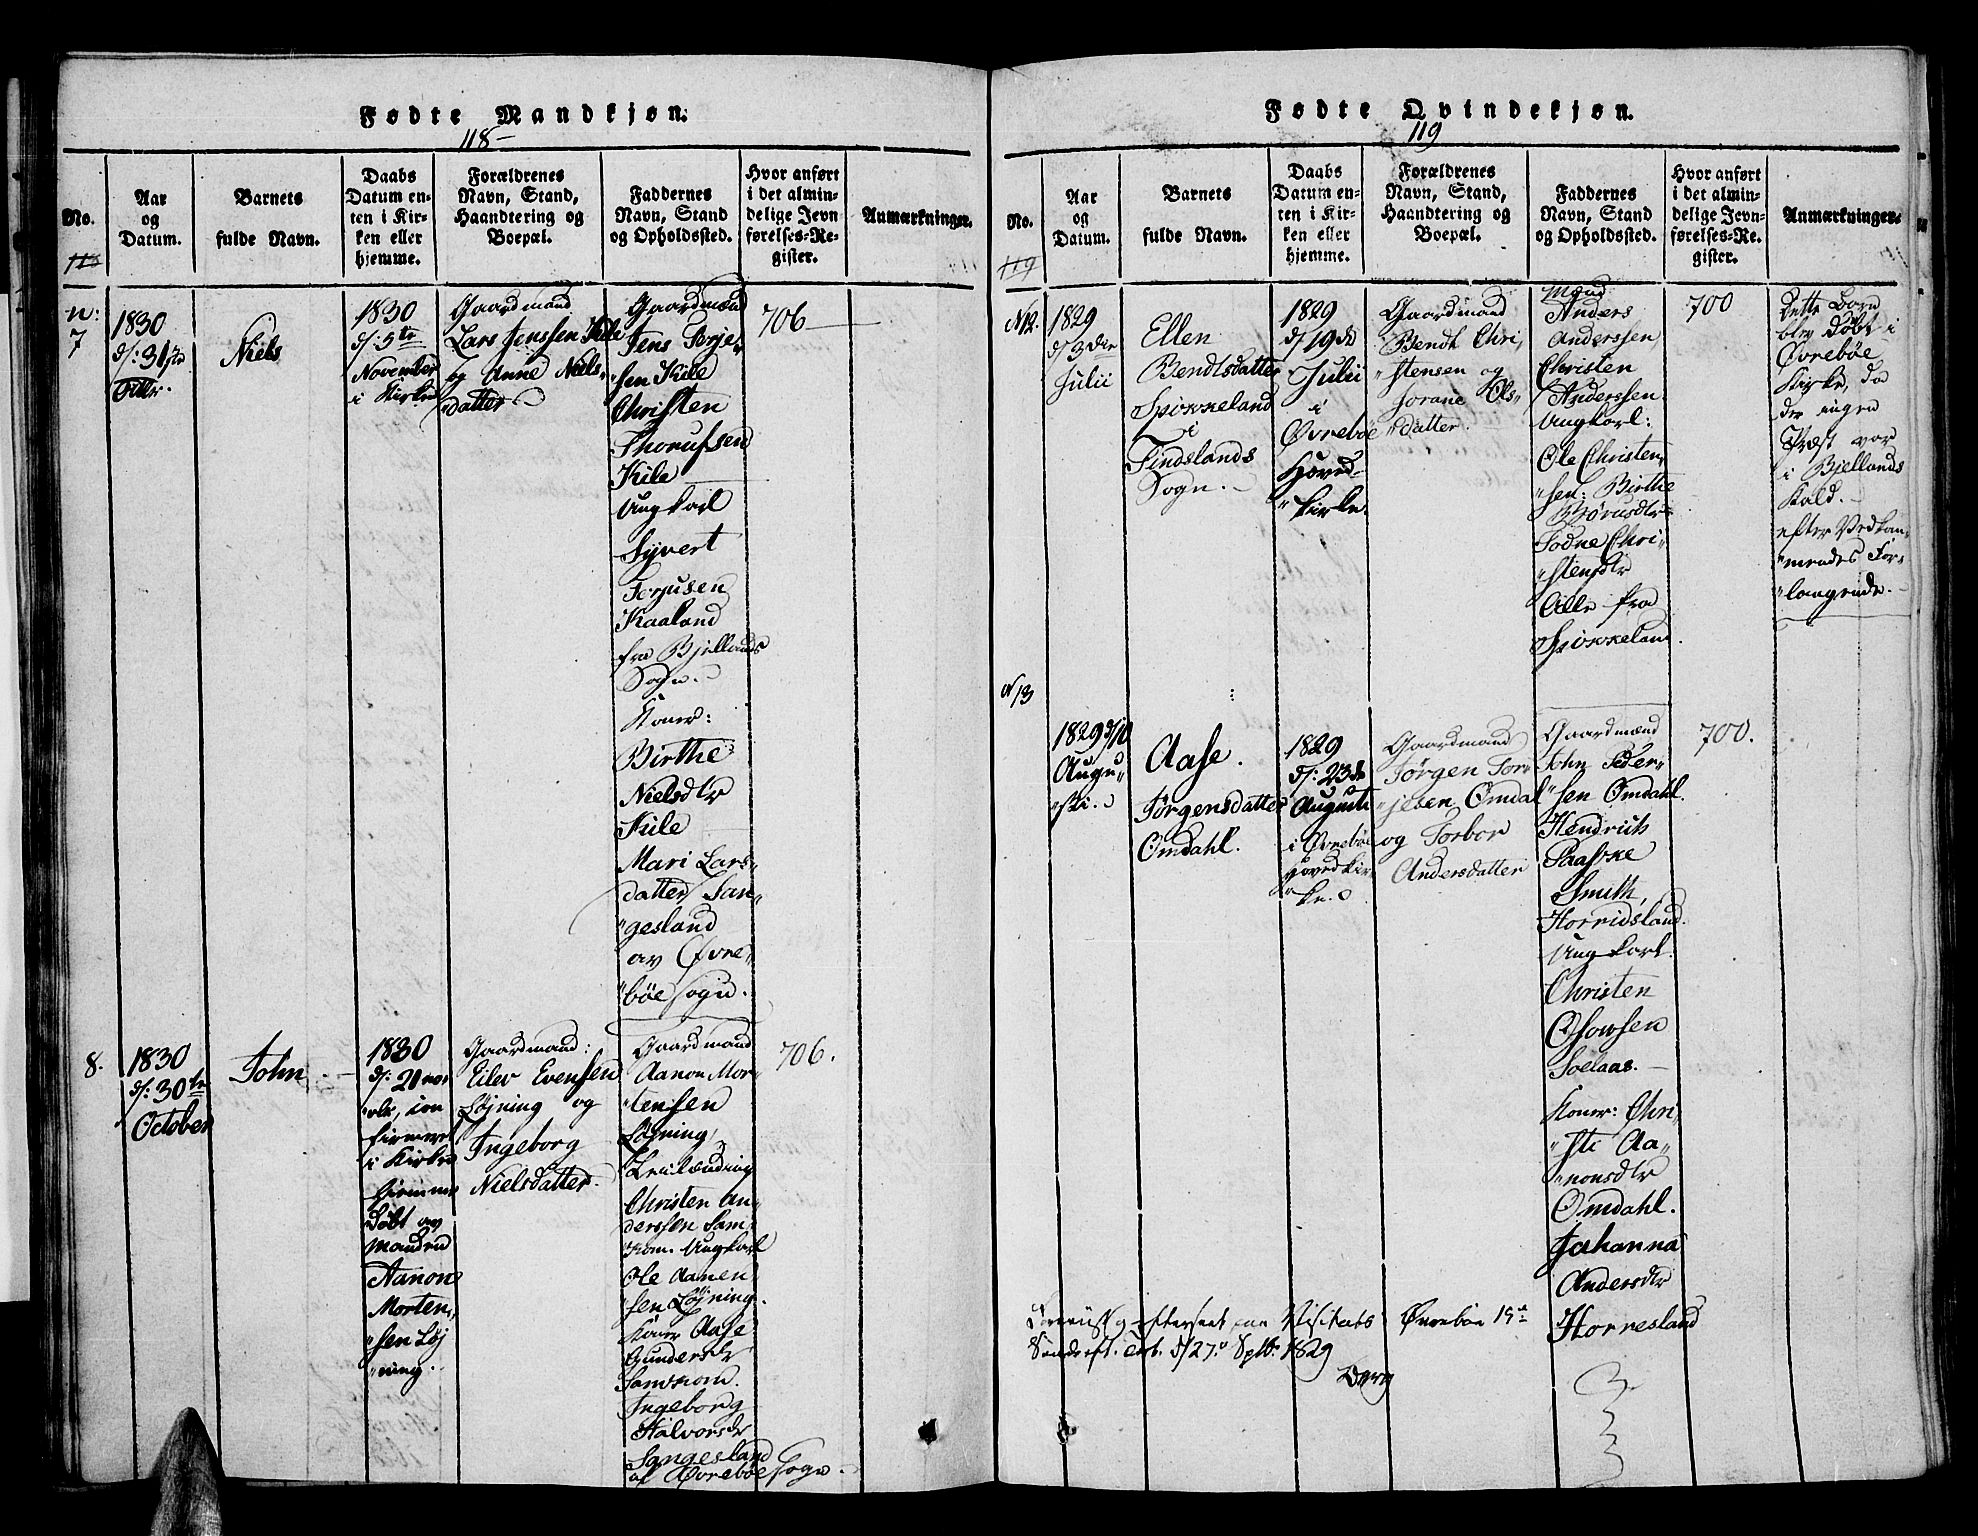 Fødte Mandkjøn.
118
No.
Aar
og
Datum.
Barnets
fulde Navn.
Daabs
Datum en-
ten i Kir-
ken eller
hjemme.
Forældrenes
Navn, Stand,
Haandtering og
Boepæl.
Faddernes
Navn, Stand
og Opholdssted.
Hvor anført
i det almin-
delige Jevn-
førelses-Re-
gister.
Anmærkninger.
n:
7
1830
d: 31te
Octbr.
Niels
1830
d: 5te
November
i Kirke
Gaardmand
Lars Jenssen Kile
og Anne Niels-
datter
Gaardmænd
Jens Torje-
sen Kile
Christen
Thorufsen
Kile
Ungkarl
Syvert
Terjusen
Kaaland
fra Bjellands
Sogn.
Koner:
Birthe
Nielsdtr
Kile
Mari Lars-
datter San-
gesland
av Øvre-
bøe Sogn.
706
8.
1830
d: 30te
October
John
1830
i Kirke
hjemme
døbt av
Manden
Aanon
Morten-
sen Løj
ning.
Gaardmand:
Eilev Evensen
Løjning og
Ingeborg
Nielsdatter.
Gaardmænd
Aanon Mor-
tensen
Løjning,
Christen An-
derssen Sam-
kom. Ungkarl
Ole Aanen-
sen Løjning.
Koner Aase
Gundersdr
Samkom.
Ingeborg
Halvorsdr
Sangesland
af Øvrebøe Sogn.
706.
Fødte Qvindekjøn.
119
No.
119
Aar
og
Datum.
Barnets
fulde Navn.
Daabs
Datum en-
ten i Kir-
ken eller
hjemme.
Forældrenes
Navn, Stand,
Haandtering og
Boepæl.
Faddernes
Navn, Stand
og Opholdssted.
Hvor anført
i det almin-
delige Jevn-
førelses-Re-
gister.
Anmærkninger.
N12.
1829
d/3die
Julii
Ellen
Bendtsdatter
Spokkeland
i
Findslands
Sogn.
1829
d/19d
Julii
i
Øvrebøe
Hoved-
kirke.
Gaardmand
Bendt Chri-
stensen og
Jorane Ols-
datter.
Mænd:
Anders
Anderssen
Christen
Anderssen
Ungkarl:
Ole Christen-
sen: Birthe
Christensdtr
Alle fra
Spokkeland.
700
Dette Barn
blev døbt i
Øvrebøe
Kirke, da
der ingen
Præst var
i Bjellands
Kald.
efter Vedkom-
mendes For-
langende.
N13
1829 d/10
Augu-
sti.
Aase.
Jørgensdatter
Omdahl.
1829
d: 23de
Augusti
i Øvrebøe
Hovedkir-
ke.
Gaardmand
Jørgen Tor-
jesen Omdal
og Torbor
Andersdatter
Gaardmænd
John Peder-
sen Omdahl.
Hendrich
Paaske
Smith,
Horridsland.
Ungkarl.
Christen
Osowsen
Soelaas.
Koner: Chri-
sti Aa-
nonsdtr
Omdahl.
Johanna
Andersdtr
Horresland
700.
efterseet paa Visitats Øvrebøe
d/27 Septbr 1829